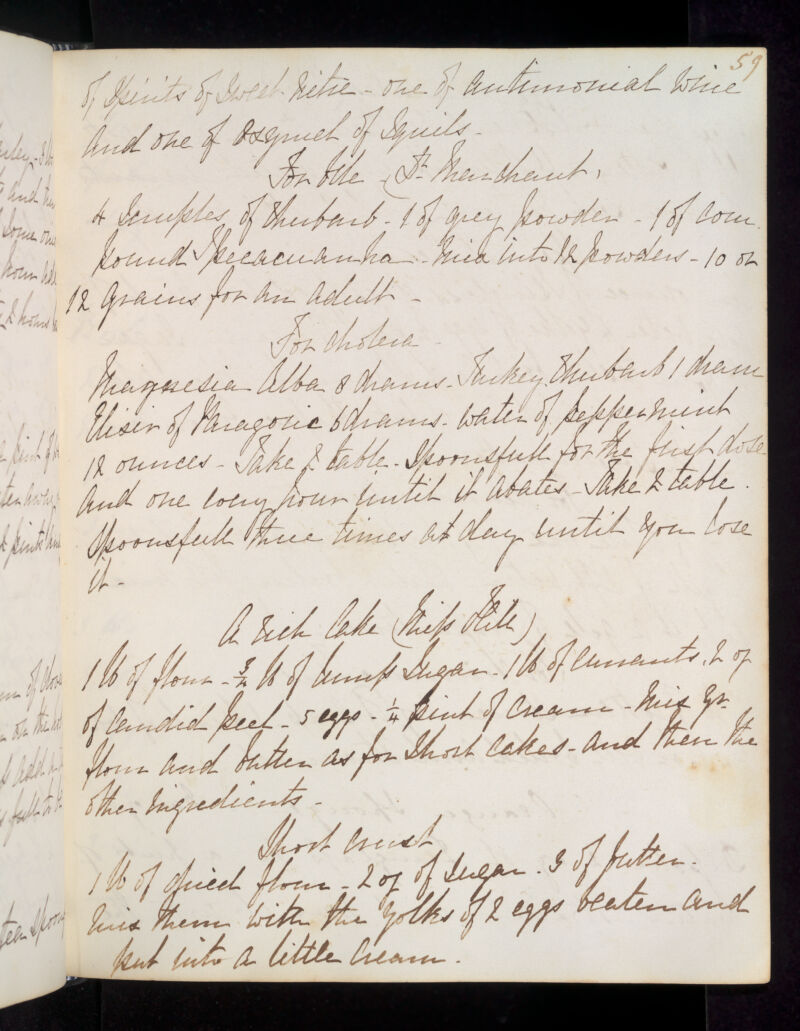 59
of Spirits of Sweet Nitre - one of antimonial Wine
and one of oxymel of Squils -
For bile (Dr Marchant)
4 Scruples of Rhubarb - 1 of grey powder - 1 of com
pound Ipecacuanha - Mix into 12 powders - 10 or
12 grains for an adult -
For cholera -
Magnesia Alba 8 drams - Turkey Rhubarb 1 dram
Elixir of Paragoric 6 drams - Water of peppermint
12 ounces - Take 2 table - Spoonsfull for the first dose
and one every hour until it abates - Take 2 table -
Spoonsfull three times at day until you lose
it -
A rich Cake (Miss)
1 lb of flour - 3/4 lb of lump Sugar - 1 lb of currants, 2 oz
of candid peel - 5 eggs - 1/4 pint of cream - Mix yr
flour and butter as for Short cakes - and then the
other ingredients -
Short crust
1 lb of dried flour - 2 oz of Sugar - 3 of butter -
Mix them with the yolks of 2 eggs beaten and
put into a little cream .